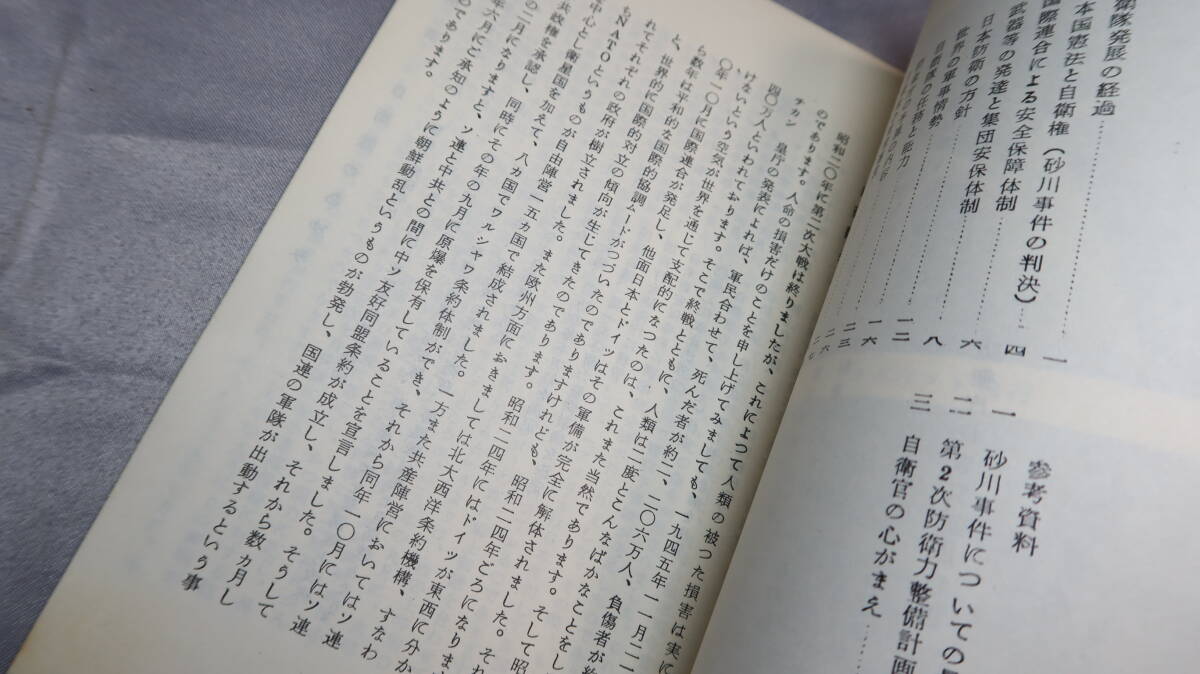 衛隊発展の経過
本国憲法と自衛権(砂川事件の判決)
国際連合による安全保障体制
武器等の発達と集団安保体制
日本防衛の方針
世界の軍事情勢
自衛隊の任務と能力
一
四
六
八
一二
一六
二三
二六
参考資料
一 砂川事件についての
二 第2次防衛力整備計画
三 自衛官の心がまえ
昭和二〇年に第二次大戦は終りましたが、これによつて人類の被つた損害は実に
のであります。人命の損害だけのことを申し上げてみましても、一九四五年一一月二
チカン 皇庁の発表によれば、軍民合わせて、死んだ者が約二、二〇六万人、負傷者が約
四〇万人といわれております。そこで終戦とともに、人類は二度とこんなばかなことをし
けないという空気が世界を通じて支配的になつたのは、これまた当然であります。そして昭
〇年一〇月に国際連合が発足し、他面日本とドイツはその軍備が完全に解体されました。それ
ら数年は平和的な国際的協調ムードがつづいたのでありますけれども、昭和二四年ごろになりま
と、世界的に国際的対立の傾向が生じてきたのであります。昭和二四年にはドイツが東西に分か
れてそれぞれの政府が樹立されました。また欧州方面におきましては北大西洋条約機構、すなわ
ちNATOというものが自由陣営一五ヵ国で結成されました。一方また共産陣営においてはソ連
中心とし衛星国を加えて、八ヵ国でワルシャワ条約体制ができ、それから同年一〇月にはソ連
共政権を承認し、同時にその年の九月に原爆を保有していることを宣言しました。そうして
の二月になりますと、ソ連と中共との間に中ソ友好同盟条約が成立し、それから数ヵ月し
年六月にご承知のように朝鮮動乱というものが勃発し、国連の軍隊が出動するという事
のであります。